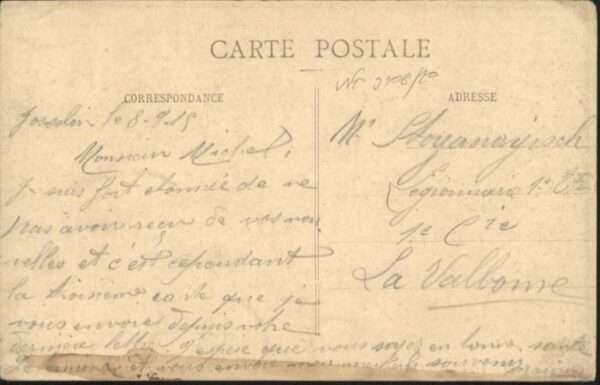 CARTE POSTALE
CORRESPONDANCE
Josselin le 8-9 15
Monsieur Michel,
Je suis fort étonnée de ne
pas avoir reçu de vos nou
velles et c'est cependant
la troisième carte que je
vous envoie depuis votre
dernière lettre. J'espère que vous soyez en bonne santé
et vous envoie mon souvenir
ADRESSE
Mr Stoyanovitsch
Légionnaire 1e
1e Cie
La Valbonne